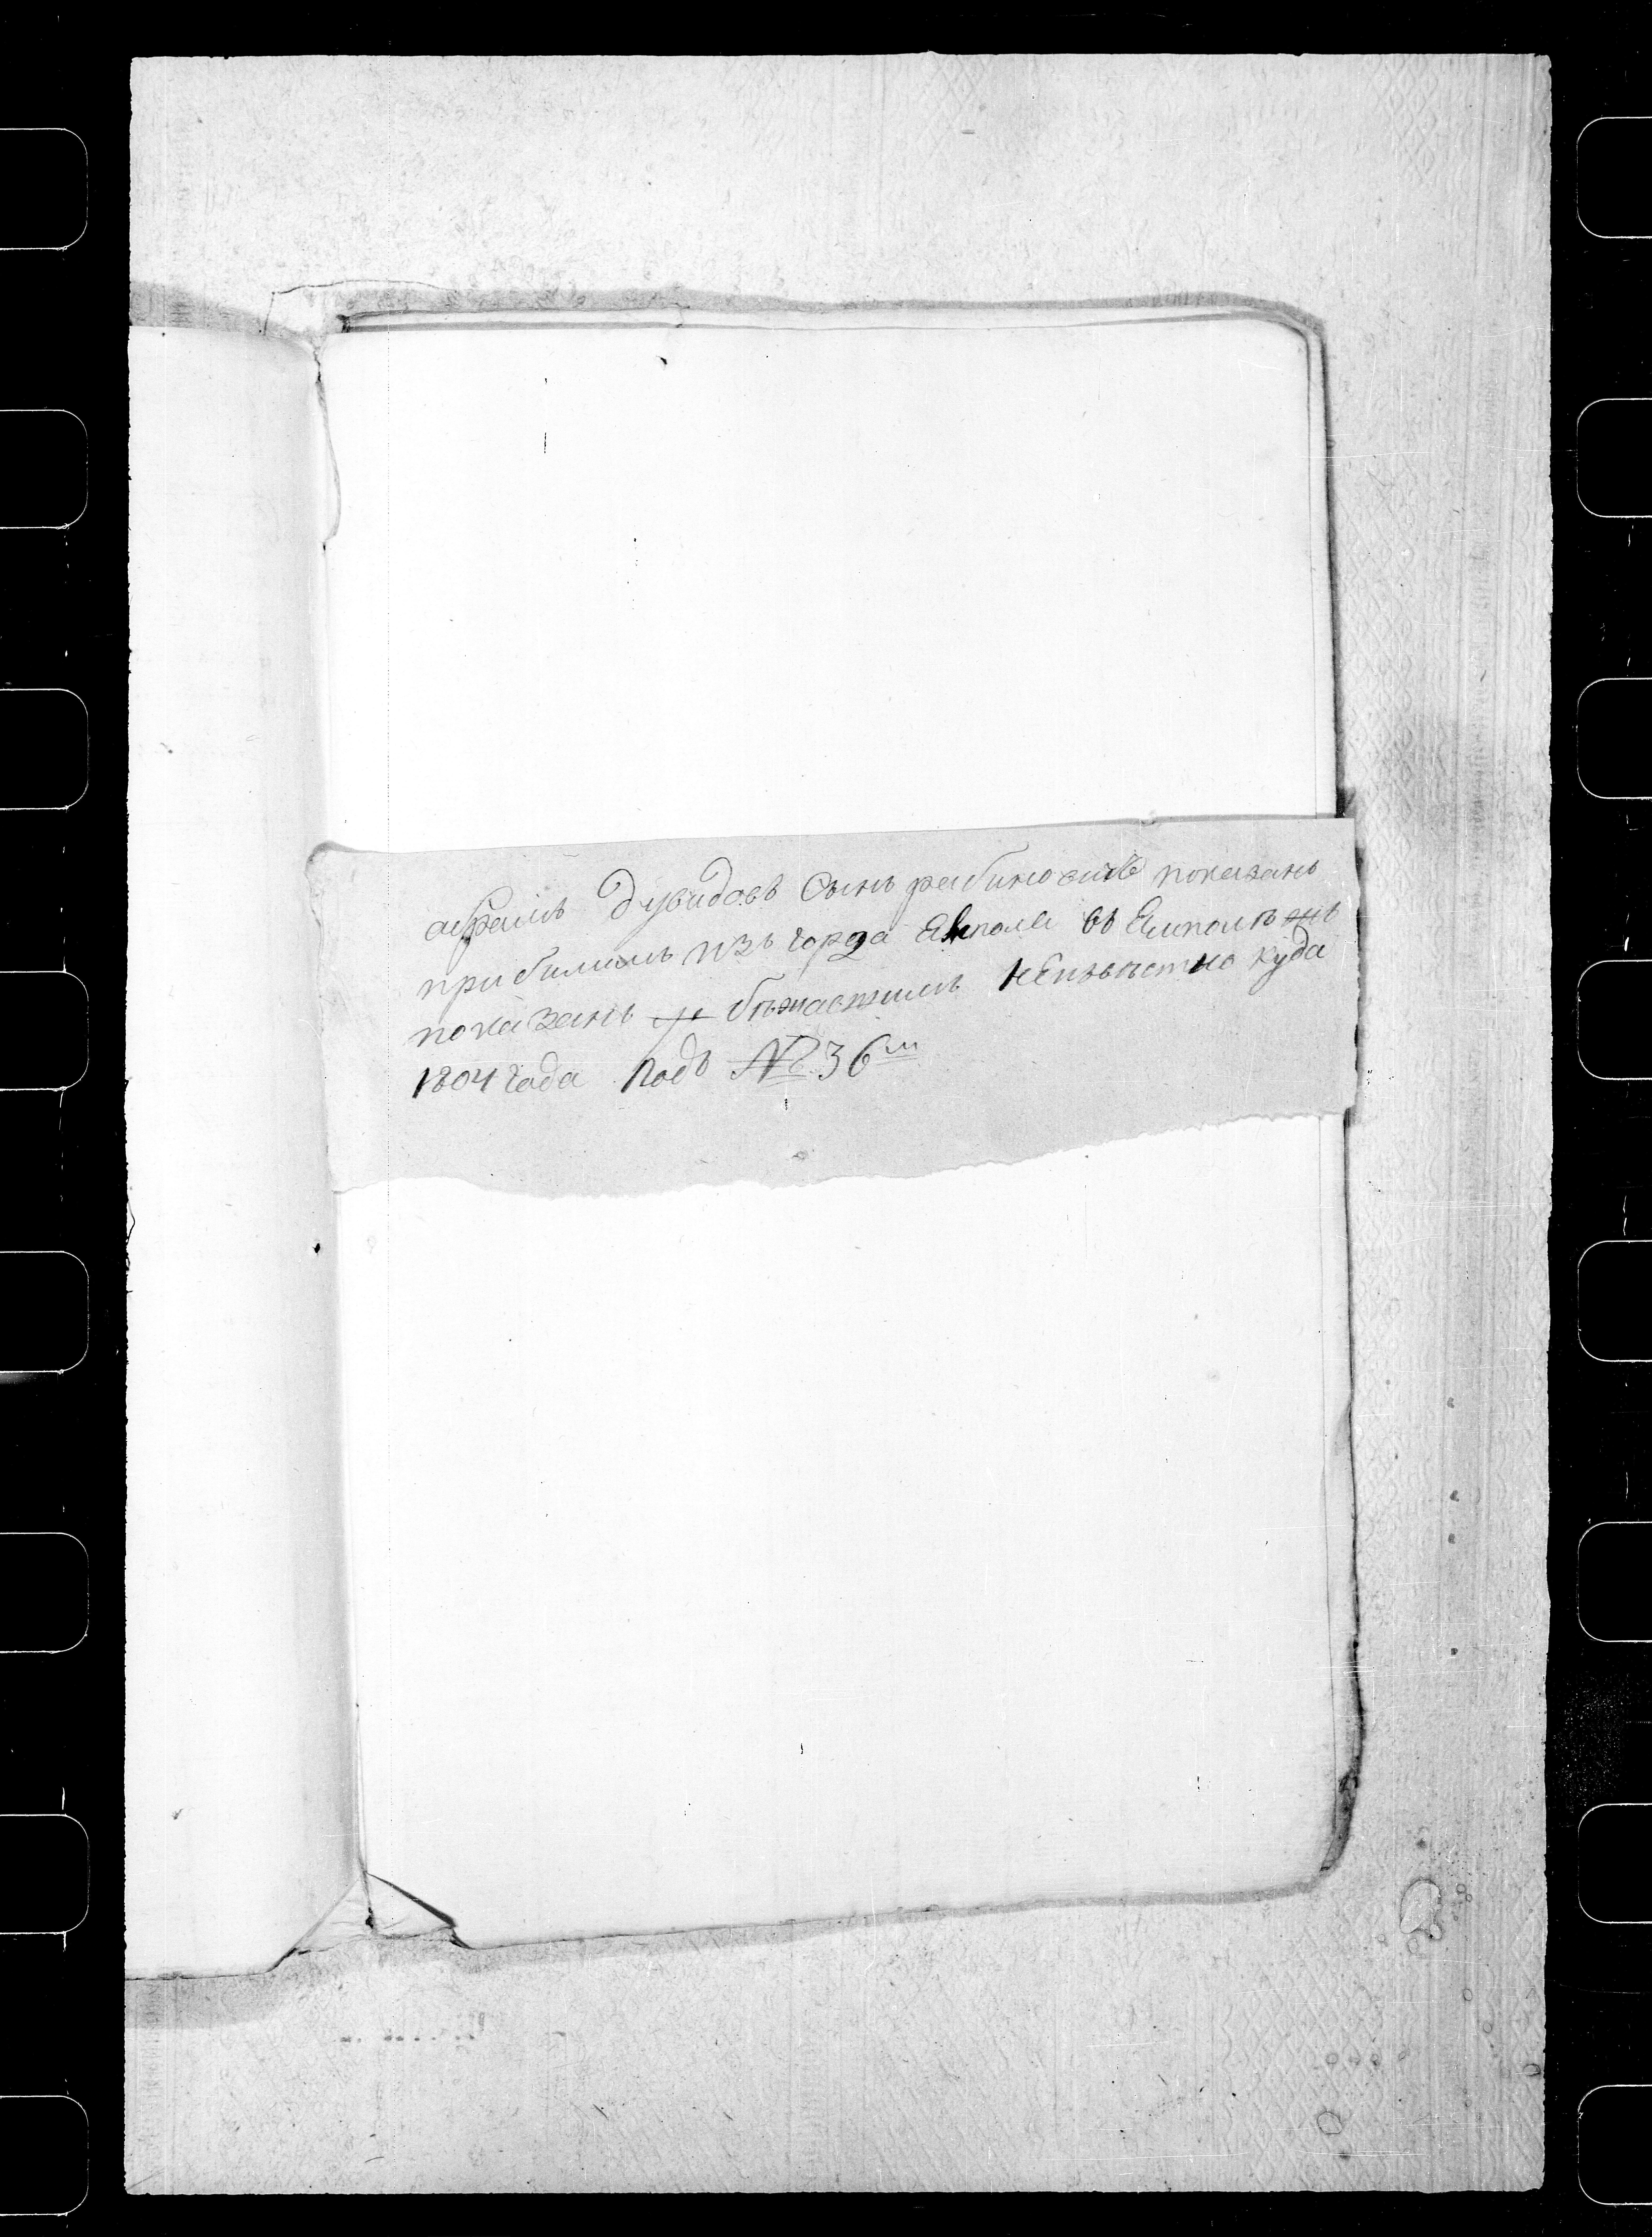 абрамъ Дувидовъ Сынъ рабиновичъ показанъ
прибилимъ изъ горда Ямполя въ Ямполѣ
показанъ бѣжавшимъ НЕизвѣстно куда
1804 года подъ № 36м